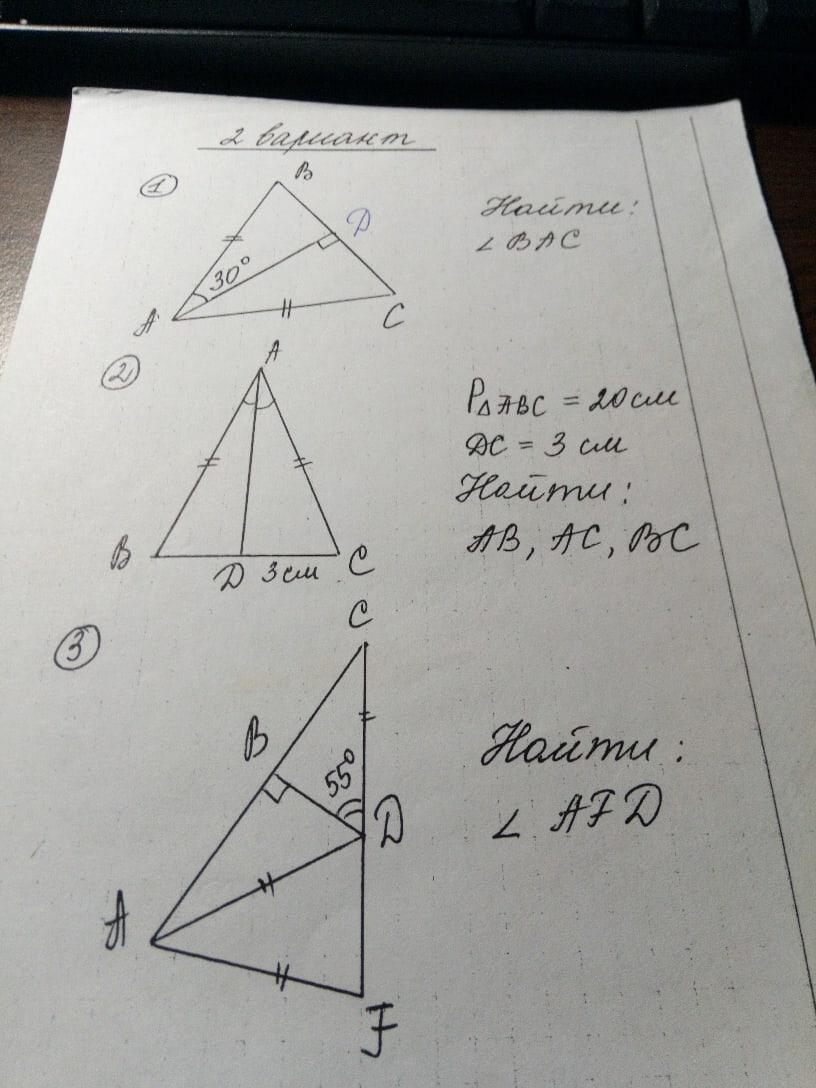 2 вариант
1
B
D
30°
A
C
Найти:
∠ BAC
2
A
B
D 3 см C
P△ABC = 20 см
DC = 3 см
Найти:
AB, AC, BC
3
C
B
55°
D
A
F
Найти:
∠ AFD